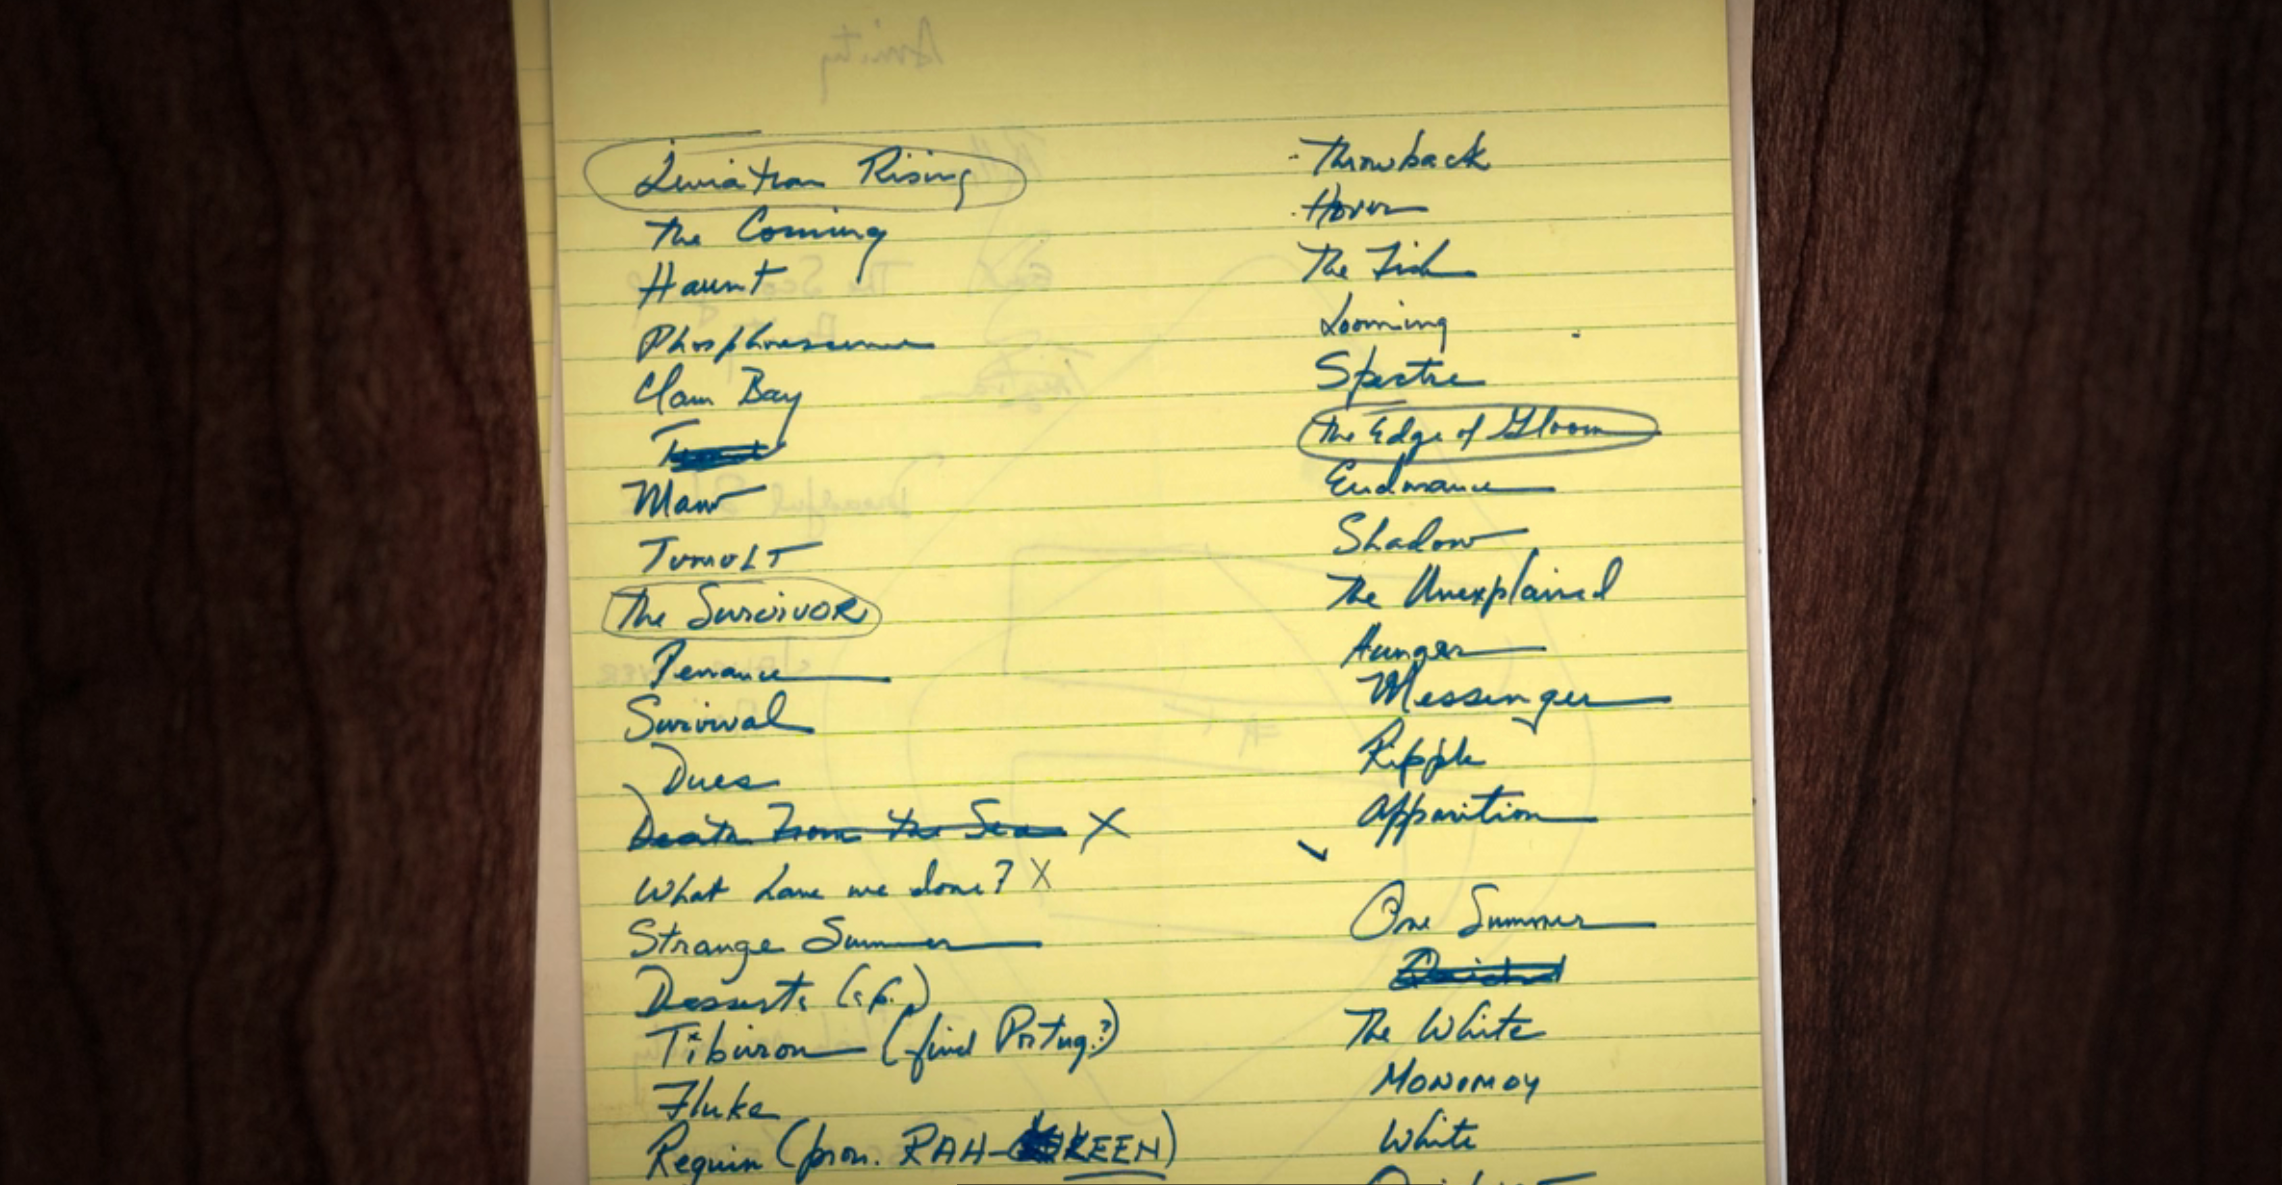 Leviathan Rising
The Coming
Haunt
Phosphorescence
Clam Bay
Maw
TumuLT
The SurvivOR
Penance
Survival
Dues
Death From the Sea X
What have we done? X
Strange Summer
Desserts (s.p.)
Tiburon (find Portug.?)
Fluke
Requin (pron. RAH-KEEN)
Throwback
Hover
The Fish
Looming
Spectre
The Edge of Gloom
Endurance
Shadow
The Unexplained
Hunger
Messenger
Ripple
Apparition
One Summer
The White
MONOMOY
White